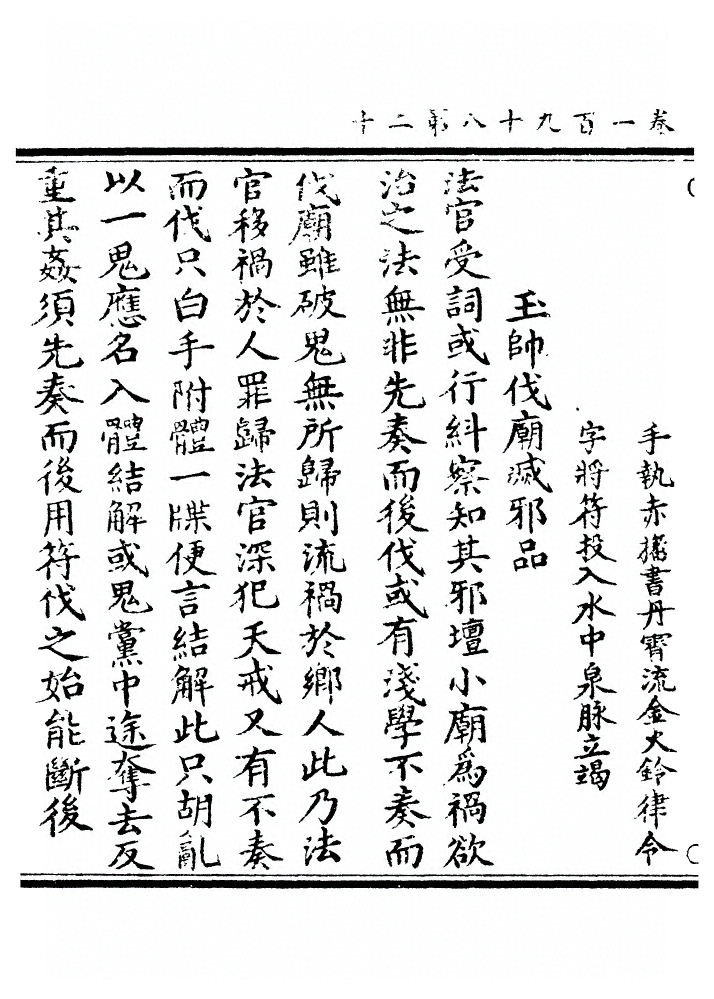 卷一百九十八第二十
手執赤攝書丹霄流金火鈴律令
字將符投入水中泉脉立竭
玉帥伐廟滅邪品
法官受詞或行糾察知其邪壇小廟為禍欲
治之法無非先奏而後伐或有淺學不奏而
伐廟雖破鬼無所歸則流禍於鄉人此乃法
官移禍於人罪歸法官深犯天戒又有不奏
而伐只白手附體一牒便言結解此只胡亂
以一鬼應名入體結解或鬼黨中途奪去反
重其姦須先奏而後用符伐之始能斷後